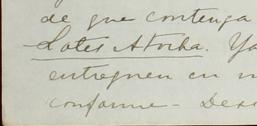 de que contenga
Lotes Atocha. Ya
entreguen en
conforme - Des